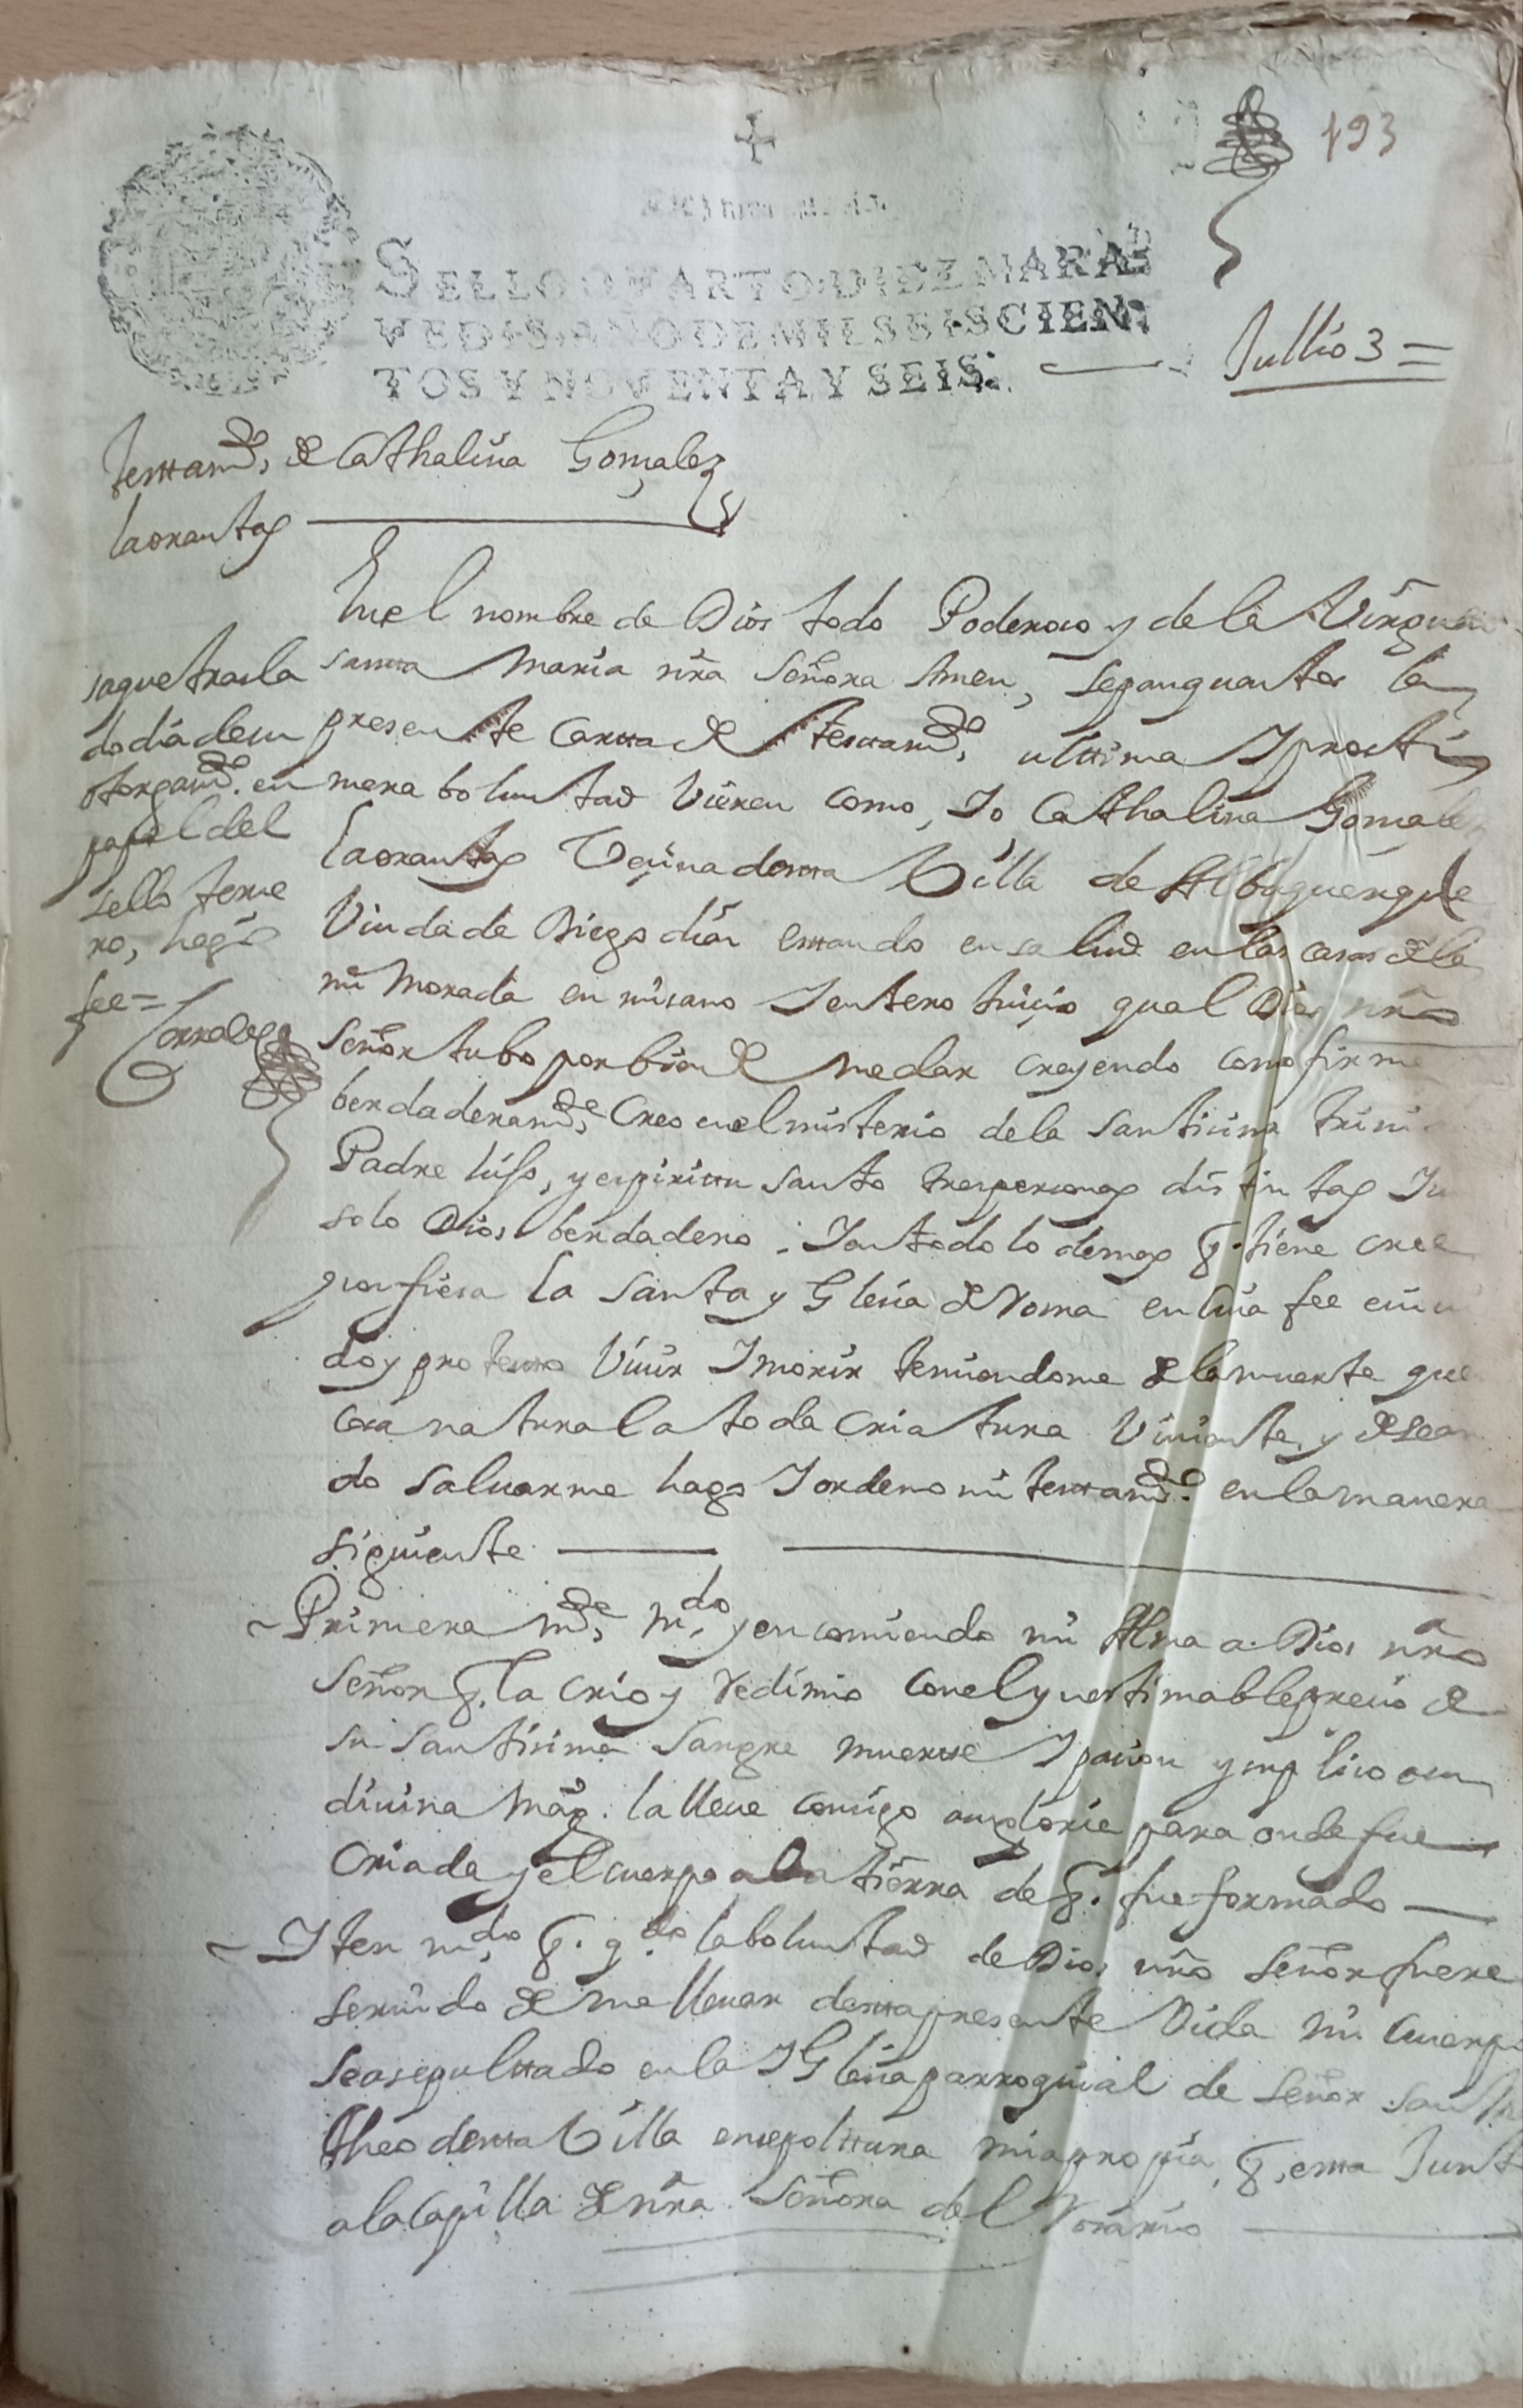 193
SELLO QVARTO, DIEZ MARA
VEDIS, AÑO DE MIL SEISCIEN
TOS Y NOVENTA Y SEIS.
Jullio 3 =
testamto, de Cathalina Gonçalez
laorantas
En el nombre de Dios todo Poderoso y de la Virgen
santta Maria nra Señora Amen, sepan quantos la
presente cartta de testtamto, ulttima y postri
mera boluntad Vieren como, Yo Cathalina Gonçalez
laorantas Veçina destta Villa de Albuquerque
Viuda de Diego dias esttando en salud en las casas de la
mi Morada en mi sano Y entero Juiçio qual Dios nro
Señor tubo por bien de me dar creyendo como firme
berdaderamte, Creo en el misterio de la santisima trini
Padre hijo, y espirittu santo tres personas distintas Y un
solo Dios berdadero; Y en todo lo demas q. tiene cree
y confiesa la santa yglesia de Roma en cuia fee
do y protestto Viuir Y morir temiendome de la muerte que
cosa natural a toda criatura Viuiente, y desean
do saluarme hago Y ordeno mi testtamto. en la manera
siguiente
Primera mte, mdo, y encomiendo mi Alma a Dios nro
Señor q. la crio y redimio con el ynestimable preçio de
su santisima sangre muertte Y pasion y suplico a su
diuina Magd. la lleue consigo a su gloria para onde fue
criada y el cuerpo a la tierra de q. fue formado
Yten mdo, q. qdo la boluntad de Dios nro Señor fuere
seruido de me lleuar destta presente Vida mi cuerpo
sea sepulttado en la Yglesia parroquial de Señor san Ma
theo destta Villa en sepolttura mia propia, q, estta Junt
a la capilla de nra Señora del Rosario
saque trasla
do dia de su
otorgamto. en
papel del
sello terçe
ro, doy
fee =